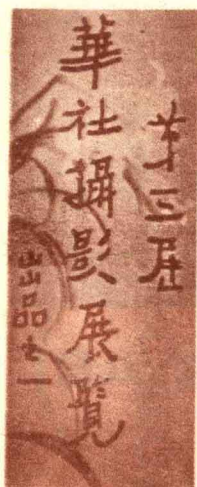 第三屆
華社攝影展覽
出品之一